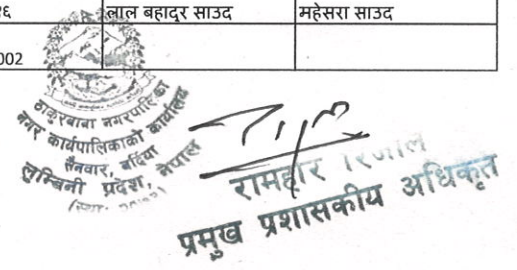 लाल बहादुर साउद
महेसरा साउद
002
ठाकुरबाबा नगरपालिका
नगर कार्यपालिकाको कार्यालय
सैनवार, बर्दिया
लुम्बिनी प्रदेश, नेपाल
रामहरि रिजाल
प्रमुख प्रशासकीय अधिकृत